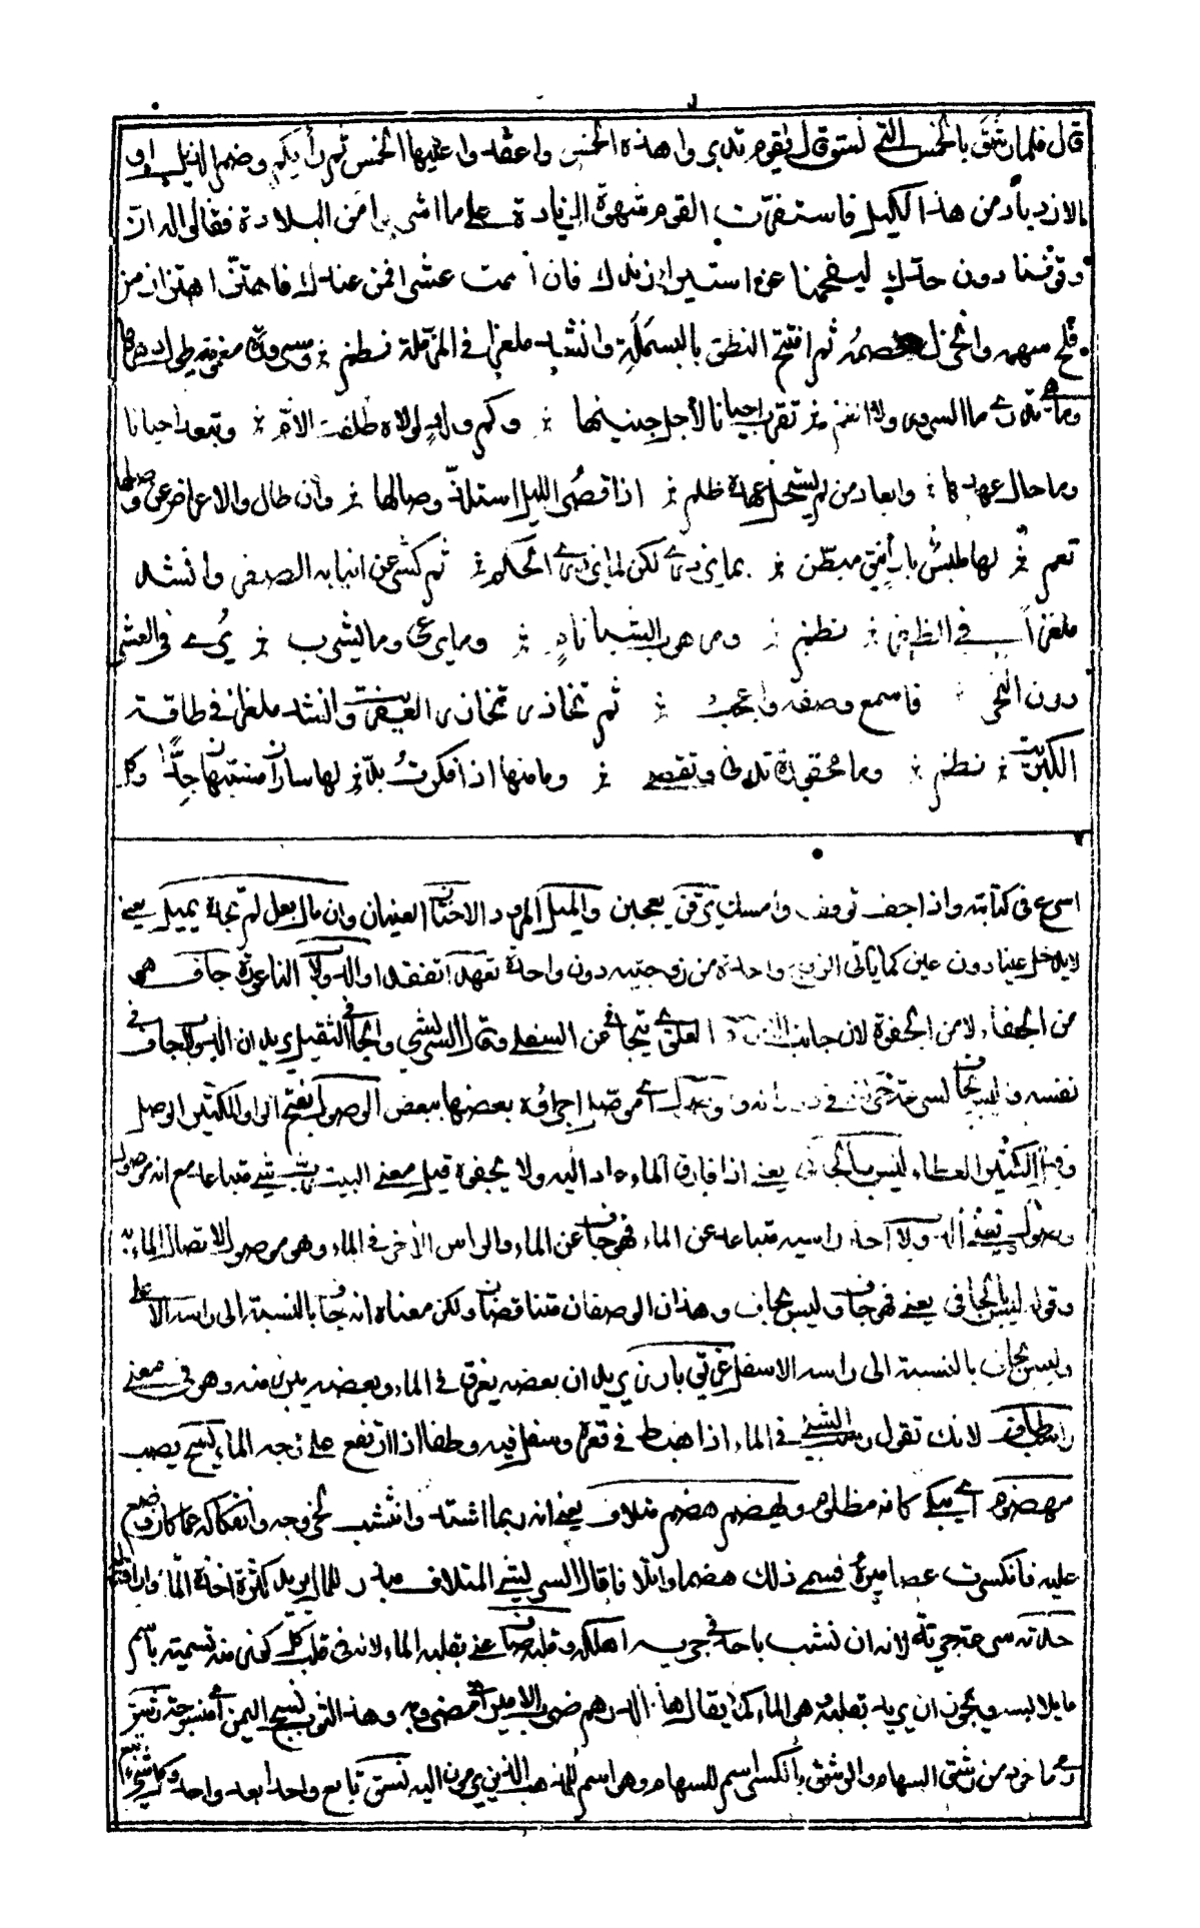 قال فلما رشق بالخمس التي نسق قال يا قوم تدبروا هذه الخمس واعقدوا عليها الخمس ثم رأيكم وضم الذيل او
الازدياد من هذا الكيل فاستفزت القوم شهوة الزيادة على ما اشربوا من البلادة فقالوا له ان
وقوفنا دون حدك ليفحمنا عن استيراء زندك فان اتممت عشرا فمن عندك فاهتز اهتزاز من
فلج سهمه وانخزل خصمه ثم افتتح النطق بالبسملة وانشد ملغزا في المزملة نظم ومسرورة مغمومة طول دهرها
وما تدري ما السرور ولا الغم تقرب احيانا لأجل جنينها وكم ولد لولاه طلقت الام وتبعد احيانا
وما حال عهدها وابعاد من لم يستحل عهده ظلم اذا قصر الليل استلذ وصالها وان طال والاعراض عن وصلها
غنم لها ملبس باد أنيق مبطن بما يزدرى لكن لما يزدرى الحكم ثم كشر عن انيابه الصفر وانشد
ملغزا في الظفر نظم ومرهوب الشبا نام وما يرعى وما يشرب يرى في العشر
دون النحر فاسمع وصفه واعجب ثم تخازر تخازر العفريت وانشد ملغزا في طاقة
الكبريت نظم وما محقورة تدنى وتقصى وما منها اذا فكرت بد لها راسان مشتبهان جدا وكل
اسرع في كتابته واذا جف توقف وأمسك والميل المرود الاختان العينان وان مال بعل لم تجده يميل يعني
لا يدخل عينا دون عين كما يأتي الزوج واحدة من زوجتيه دون واحدة تعهدا تفقدا الدولاب الناعورة جاف هو
من الجفاء لا من الجفوة لان جانب العلى يتجافى عن السفلى والجافي الثقيل يريد ان الدولاب جاف في
نفسه وليس بجاف وصول أي موصل اجزاؤه بعضها ببعض الوصول بفتح الواو الكثير الوصل
الكثير العطاء ليس بالجافي يعني اذا فارق الماء عاد اليه ولا يجفوه قيل معنى البيت شيء متباعد مع انه موصول
وصول يعني الدولاب احد راسيه متباعد عن الماء فهو جاف عن الماء والراس الأخر في الماء وهو موصول لاتصال الماء به
وقوله ليس بالجافي يعني فهو جاف وليس بجاف وهذان الوصفان متناقضان ولكن معناه انه جاف بالنسبة الى راسه الاعلى
وليس بجاف بالنسبة الى راسه الاسفل غريق بارز يريد ان بعضه يغرق في الماء وبعضه يبرز منه وهو في معنى
راسب طاف لانك تقول رسب الشيء في الماء اذا هبط في قعره وسفل فيه وطفا اذا ارتفع على وجه الماء يسح يصب
مهضوم أي يبكي كانه مظلوم ويهضم هضم متلاف يعني انه ربما اشتد وانتشب لخروجه وانفكاكه عما كان وضع
عليه فانكسرت عصا فسمي ذلك هضما واتلافا قال متلاف يريد كثرة اخذه الماء
حدته سرعة جريته لانه ان نشب باحد في جريه اهلكه وقلبه صاف عني بقلبه الماء لانه في قلب كل كوز منه تسميته باسم
ما يلابسه ويجوز ان يريد بقلبه وهو الماء كما يقال هذا الدرهم ضرب الامير أي مضروبه وهذا الثوب نسج اليمن أي منسوجه رشق
أي ماخوذ من رشق السهام والرشق بالكسر اسم للسهام وهو اسم نسق تابع واحدا بعد واحد